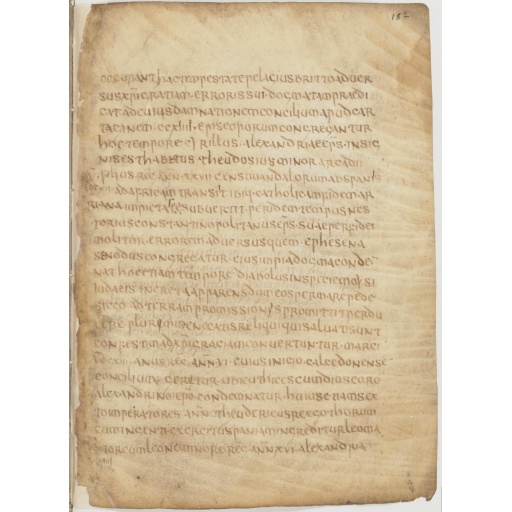 18
occupant hac tempestate pelacius britto adver
sus xpi gratiam erroris sui docmata praedi
cat ad cuius damnationem concilium apud car
taginem ccxiiii episcoporum congregantur
hoc tempore cyrillus alexandriae eps insig
nis est habetus theudosius minor arcadii
filius reg ann xxvii gens uuandalorum ab spanis
ad africam transit ibiq catholicam fidem ar
riana impietate subvertit per idem tempus nes
torius constantinopolitanus eps suae perfidei
molitur errorem adversus quem ephesena
senodus congregatur eius impia docma conde
nat hoc etiam tempore diabolus in specie moysi
iudaeis in creta apparens dum eos per mare pede
sicco ad terram promissionis promittit perdu
cere plurimis enecatis reliqui qui salvati sunt
confestim ad xpi graciam convertuntur marci
anus reg ann vi cuius inicio calcedonense
concilium geretur ubi euthices cum dioscoro
alexandrino epo condemnatur huius etiam sex
to imperatores anno theudericus rex gothorum
cum incenti exercitu spaniam increditur leo ma
ior cum leone minore reg ann xvi alexandria